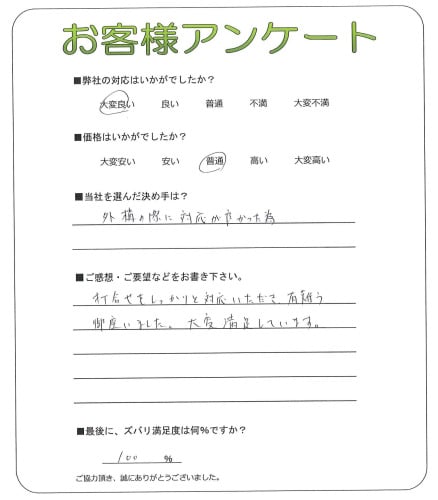 お客様アンケート
■弊社の対応はいかがでしたか?
大変良い 良い 普通 不満 大変不満
■価格はいかがでしたか?
大変安い 安い 普通 高い 大変高い
■当社を選んだ決め手は?
外構の際に対応が良かった為
■ご感想・ご要望などをお書き下さい。
打合せをしっかりと対応いただき、有難う
御座いました。大変満足しています。
■最後に、ズバリ満足度は何%ですか?
100 %
ご協力頂き、誠にありがとうございました。